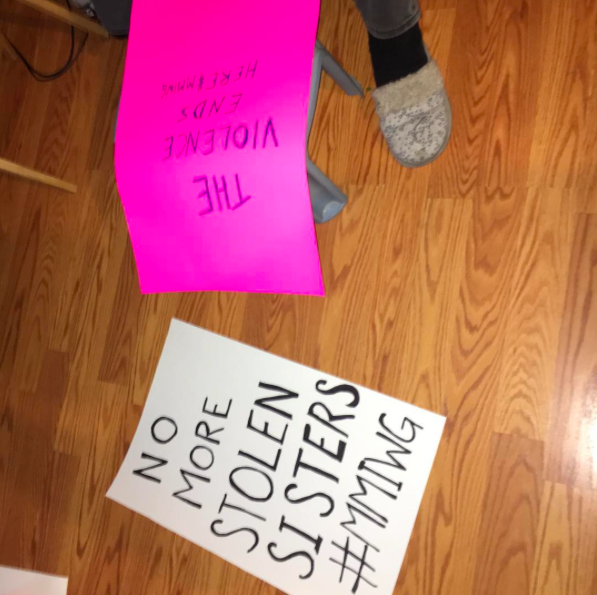 THE
VIOLENCE
ENDS
HERE #MMIWG
NO
MORE
STOLEN
SISTERS
#MMIWG